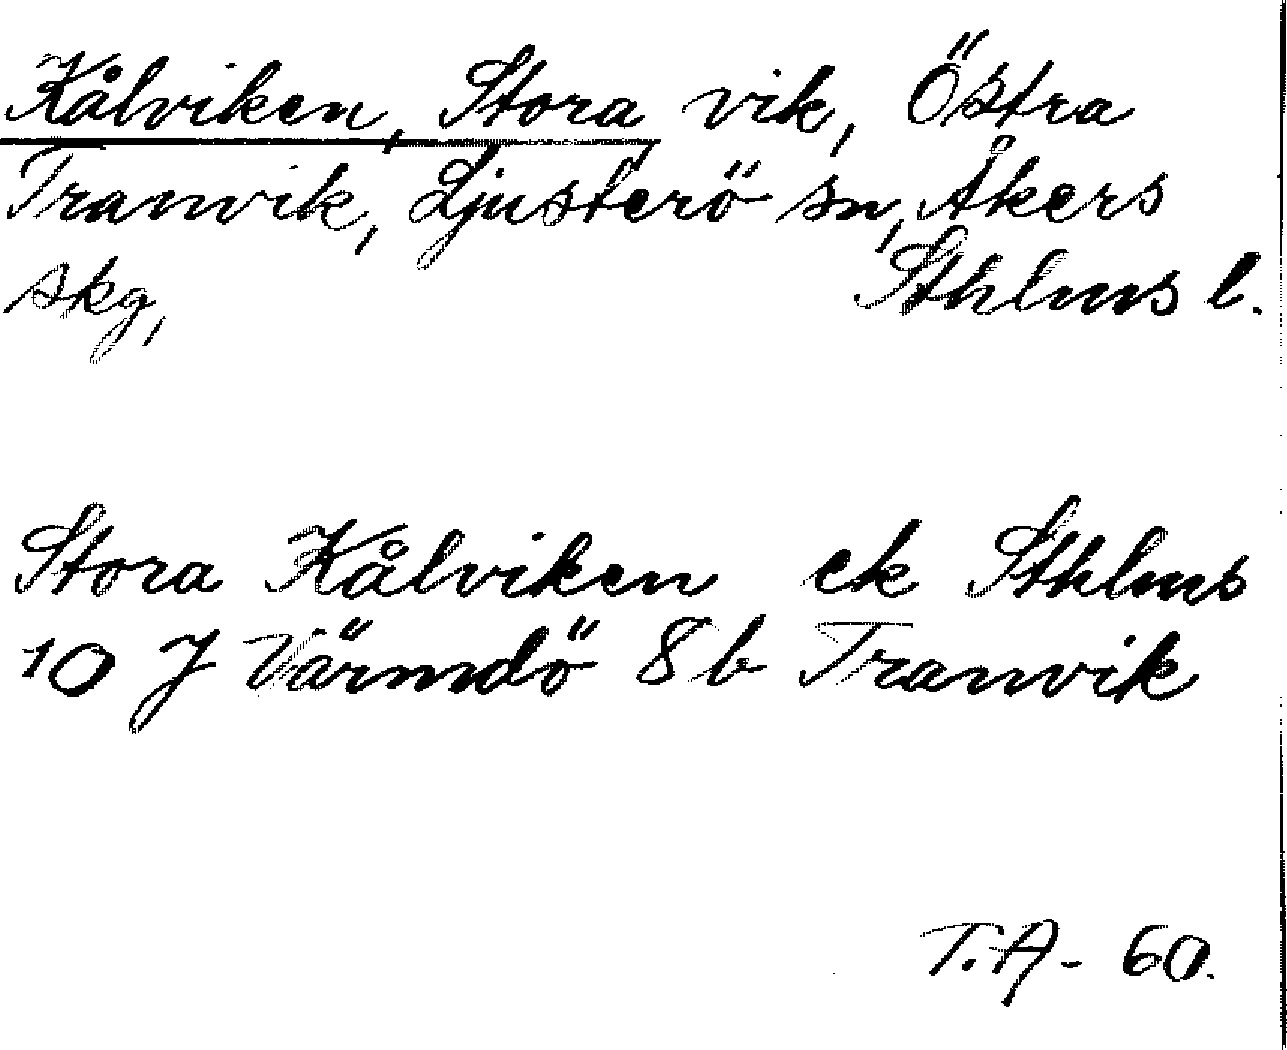 Kålviken, Stora vik, Östra
Tranvik, Ljusterö sn, Åkers
skg, Sthlms l.
Stora Kålviken ek Sthlms
10 J Värmdö 8b Tranvik
T.A- 60.